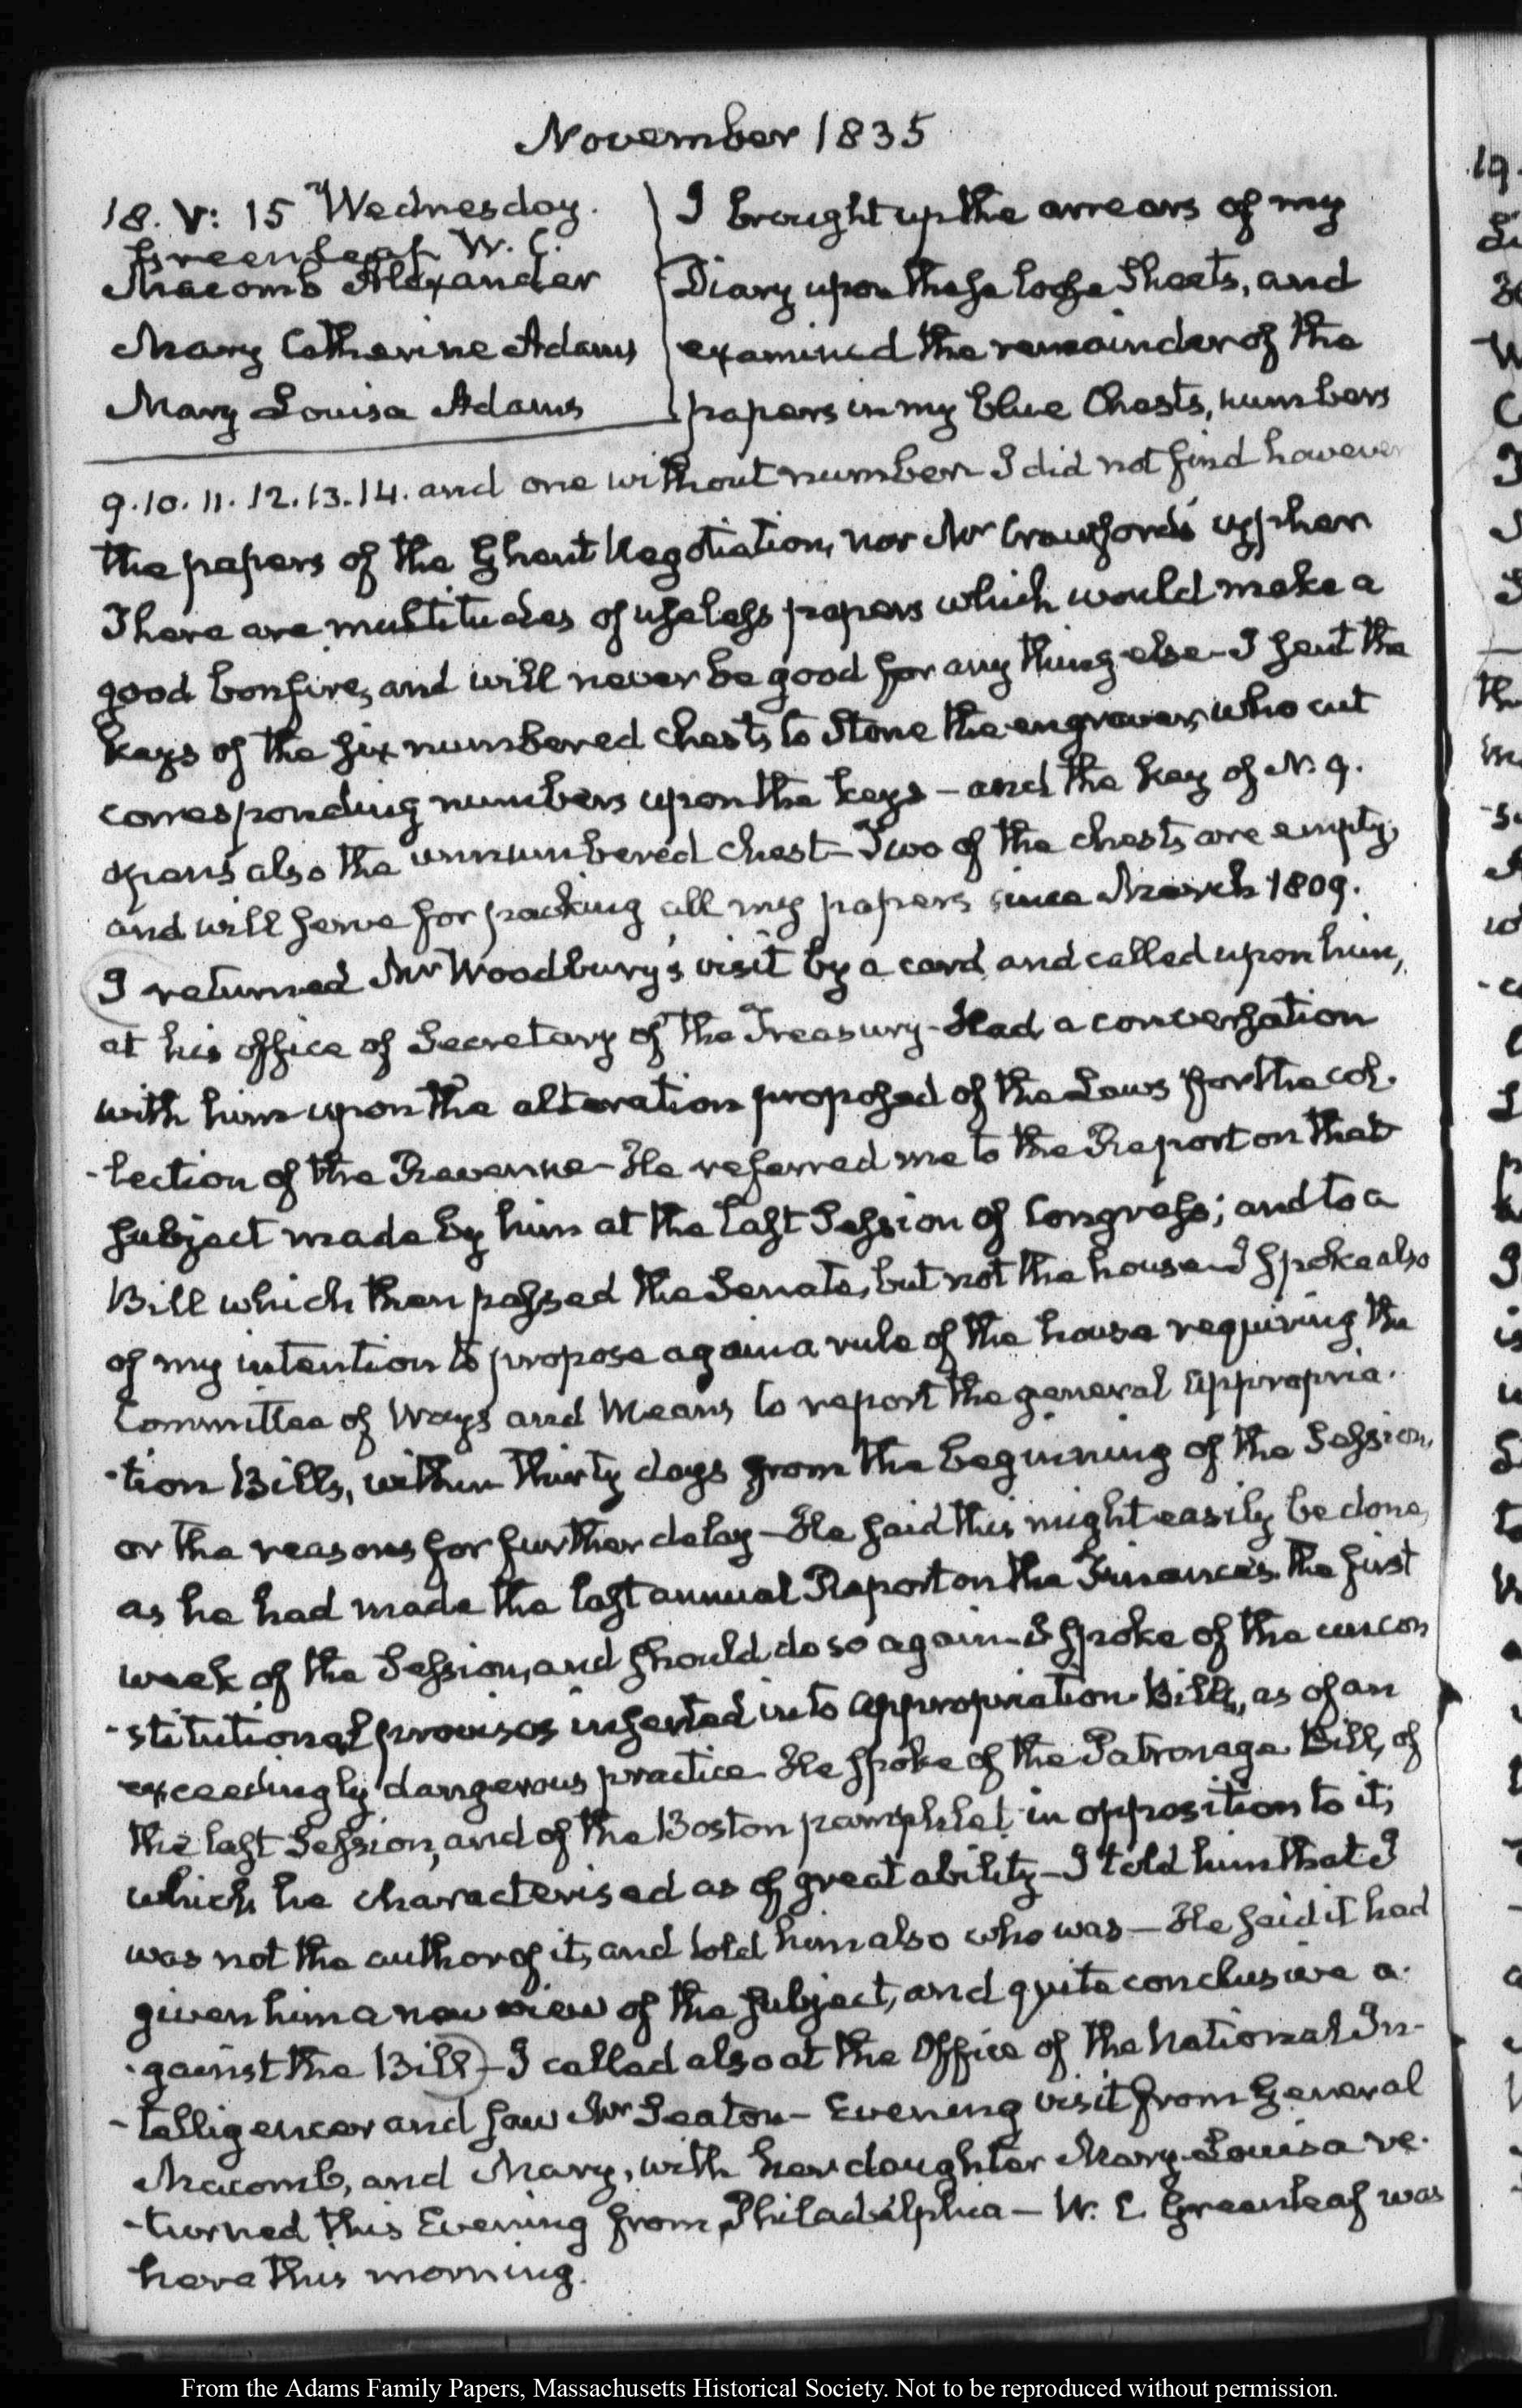 November 1835
18. V: 15 Wednesday.
Greenleaf W. C.
Macomb Alexander
Mary Catherine Adams
Mary Louisa Adams
I brought up the arrears of my
Diary upon these loose Sheets, and
examined the remainder of the
papers in my blue Chests, numbers
9. 10. 11. 12. 13. 14. and one without number I did not find however
the papers of the Ghent Negotiation, nor Mr Crawford's cypher
There are multitudes of useless papers which would make a
good bonfire, and will never be good for any thing else – I sent the
keys of the six numbered chests to Stone the engraver, who cut
corresponding numbers upon the keys – and the key of N. 9.
opens also the unnumbered chest – Two of the chests are empty,
and will serve for packing all my papers since March 1809.
I returned Mr Woodbury's visit by a card, and called upon him,
at his office of Secretary of the Treasury – Had a conversation
with him upon the alteration proposed of the Laws for the col-
-lection of the Revenue – He referred me to the Report on that
subject made by him at the last Session of Congress; and to a
Bill which then passed the Senate, but not the house – I spoke also
of my intention to propose again a rule of the house requiring the
Committee of Ways and Means to report the general appropria-
-tion Bills, within thirty days from the beginning of the Session,
or the reasons for further delay – He said this might easily be done,
as he had made the last annual Report on the Finances the first
week of the Session, and should do so again – I spoke of the uncon
-stitutional provisos inserted into appropriation Bills, as of an
exceedingly dangerous practice – He spoke of the Patronage Bill, of
the last Session, and of the Boston pamphlet in opposition to it,
which he characterised as of great ability – I told him that I
was not the author of it, and told him also who was – He said it had
given him a new view of the subject, and quite conclusive a-
-gainst the Bill – I called also at the Office of the National In-
-telligencer and saw Mr Seaton – Evening visit from General
Macomb, and Mary, with her daughter Mary-Louisa re-
-turned this Evening from Philadelphia – W. C. Greenleaf was
here this morning.
From the Adams Family Papers, Massachusetts Historical Society. Not to be reproduced without permission.